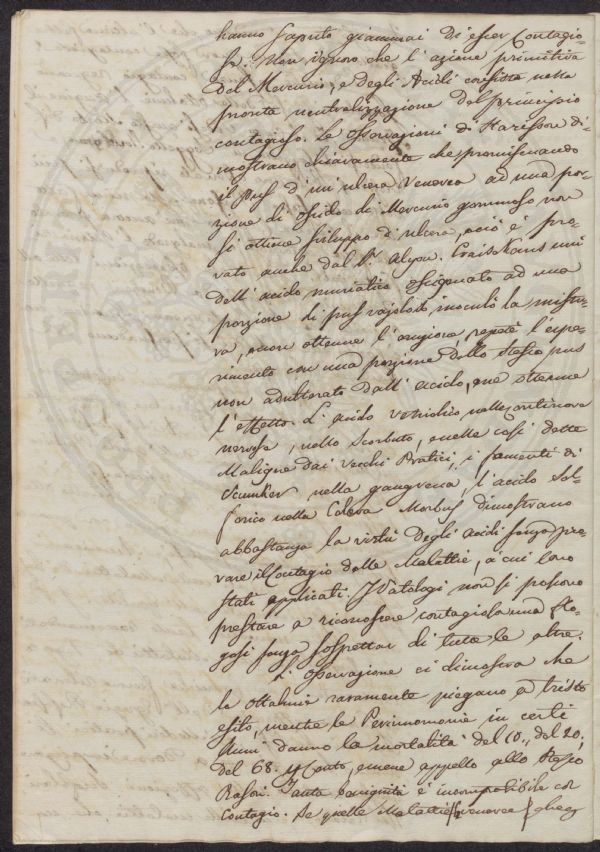 hanno saputo giammai di esser Contagio-
se. Non ignoro che l'azione primitiva
del Mercurio, e degli Acidi consista nella
pronta neutralizzazione del principio
contagioso. Le Osservazioni di Harisson di-
mostrano chiaramente che promischiando
il pus d'un'ulcera venerea ad una por-
zione di ossido di Mercurio gommoso non
si ottiene sviluppo d'ulcera, ciò è pro-
vato anche dal Sr. Alyon. Cruiskans unì
dell'acido muriatico ossigenato ad una
porzione di pus vajoloso, inoculò la mistu-
ra, e non ottenne l'eruzione, repetè l'espe-
rimento con una porzione dello stesso pus
non adulterato dall'acido, ne ottenne
l'effetto. L'acido vetriolico nelle continove
nervose, nello Scorbuto, e nelle così dette
Maligne dai vecchi Pratici, i fomenti di
Scmuker nella gangrena, l'acido Sol-
forico nella Colera Morbus dimostrano
abbastanza la virtù degli acidi senza pro-
vare il Contagio delle Malattie, a cui sono
stati applicati. I Patologi non si possono
prestare a riconoscere contagiosa una Flo-
gosi senza sospettar di tutte le altre.
L'osservazione ci dimostra che
le ottalmie raramente piegano a tristo
esito, mentre le Perinomonie in certi
Anni danno la mortalità del 10., del 20.
del 68. p Cento, e mene appello allo Stesso
Rasori. Tanta benignità è incompatibile col
Contagio. Se quelle Malattie veneree